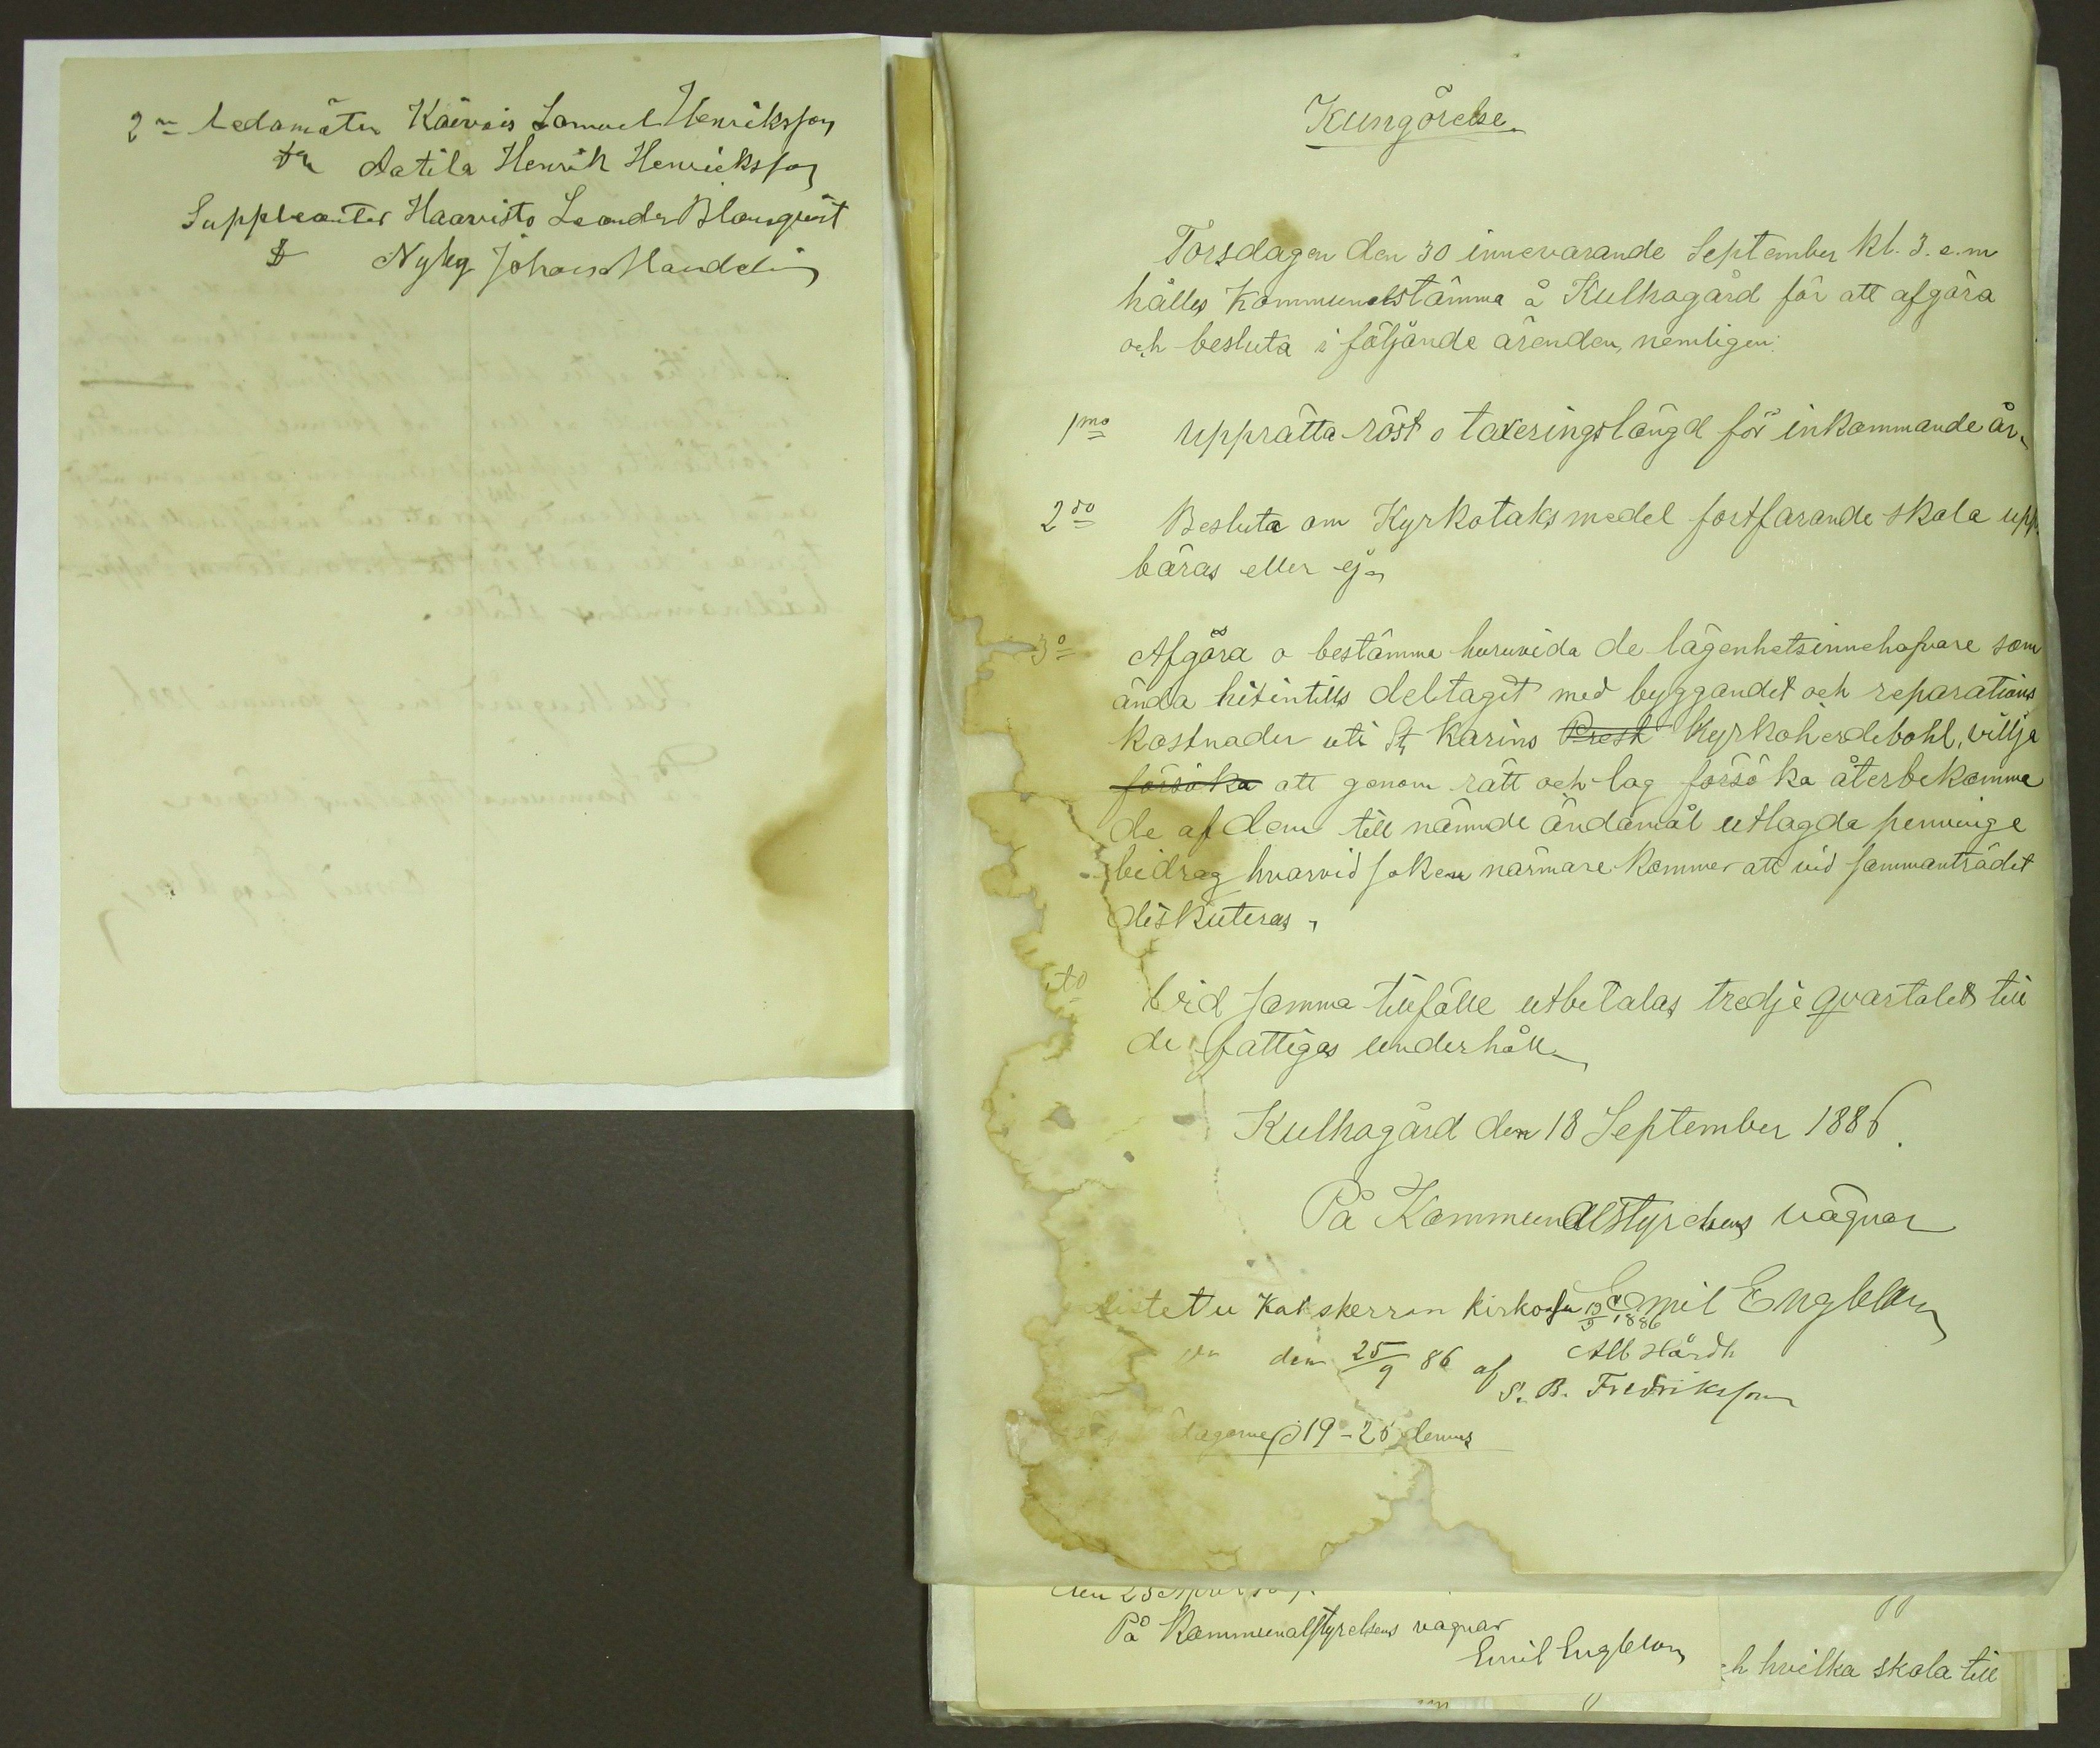 2ne Ledamöter Kärvois Samuel Henriksson
Aatila Henrik Henricksson
Suppleanter Haavisto Leander Blomquist
Nyby Johan Mandelin
Kungörelse
Torsdagen den 30 innevarande September kl. 3. e.m
hålles Kommunalstämma å Kulhogård för att afgöra
och besluta i följande ärenden, nemligen:
1mo upprätta röst o taxeringslängd för inkommande år
2do Besluta om Kyrkotaksmedel fortfarande skola upp
bäras eller ej
3o Afgöra o bestämma huruvida de lägenhetsinnehafvare som
ända hitintills deltagit med byggandet och reparations
kostnader uti St Karins Prest Kyrkoherdebohl, villja
försöka att genom rätt och lag försöka återbekomma
de af dem till nämnde ändamål utlagda penninge
bidrag hvarvid saken närmare kommer att vid sammanträdet
diskuteras,
to Vid samma tillfälle utbetalas tredje qvartalet till
de fattigas underhåll
Kulhogård den 18 September 1886.
På Kommunalstyrelsens vägnar
Emil Engblom
listetu Kakskerran kirkossa 19/9 1886
Alb Hårdh
den 25/9 86 af
S. B. Fredriksson
dagarne 19-25 dennes
den 25 April
På Kommunalstyrelsens vägnar
Emil Engblom
h hvilka skola till